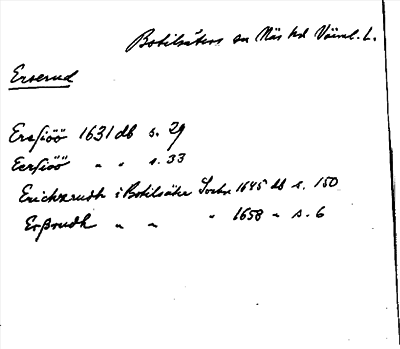 Botilsäters sn Näs hd Värml. L.
Erserud
Ersiöö 1631 db s. 29
Eersiöö " " s. 33
Erichzrudh i Botilsäter Sochn 1645 db s. 150
Erßrudh " " " 1658 " s. 6